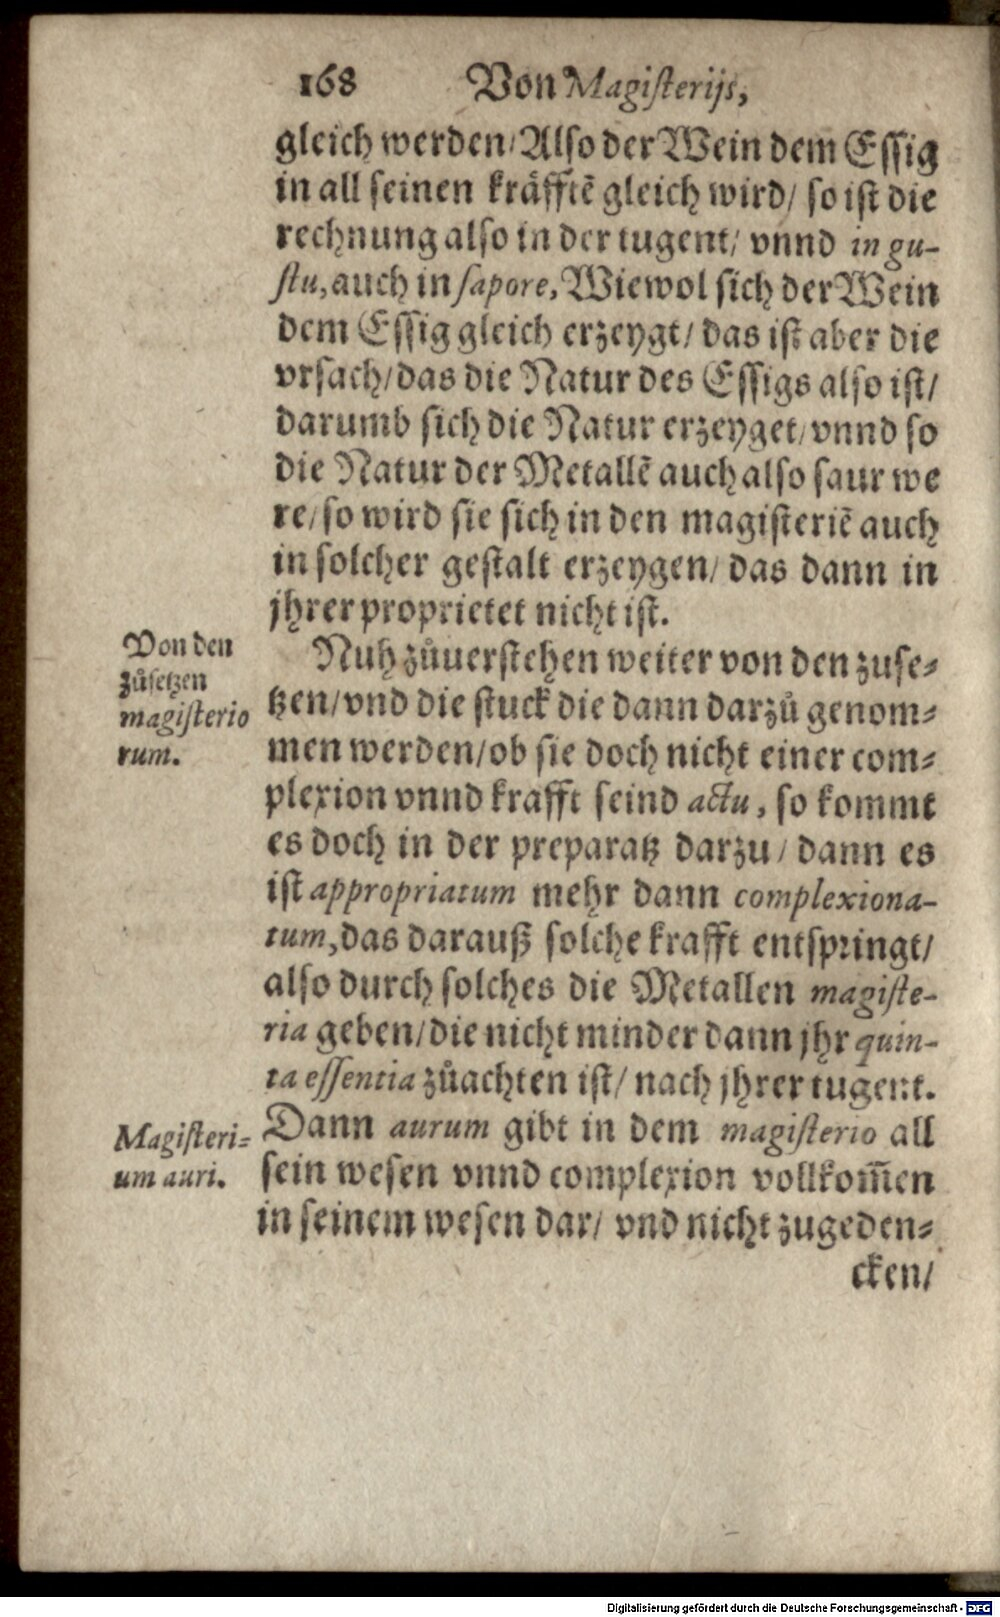 168 Von Magisterijs,
gleich werden/Also der Wein dem Essig
in all seinen kräfftẽ gleich wird/ so ist die
rechnung also in der tugent/ vnnd in gu-
stu, auch in sapore, Wiewol sich der Wein
dem Essig gleich erzeygt/ das ist aber die
vrsach/das die Natur des Essigs also ist/
darumb sich die Natur erzeyget/vnnd so
die Natur der Metallẽ auch also saur we
re/so wird sie sich in den magisteriẽ auch
in solcher gestalt erzeygen/ das dann in
jhrer proprietet nicht ist.
Von den
zůsetzen
magisterio
rum.
Nuh zůuerstehen weiter von den zuse-
tzen/vnd die stuck die dann darzů genom-
men werden/ob sie doch nicht einer com-
plexion vnnd krafft seind actu, so kommt
es doch in der preparatz darzu/ dann es
ist appropriatum mehr dann complexiona-
tum, das darauß solche krafft entspringt/
also durch solches die Metallen magiste-
ria geben/die nicht minder dann jhr quin-
ta essentia zůachten ist/ nach jhrer tugent.
Magisteri-
um auri.
Dann aurum gibt in dem magisterio all
sein wesen vnnd complexion vollkom̃en
in seinem wesen dar/ vnd nicht zugeden-
cken/
Digitalisierung gefördert durch die Deutsche Forschungsgemeinschaft - DFG